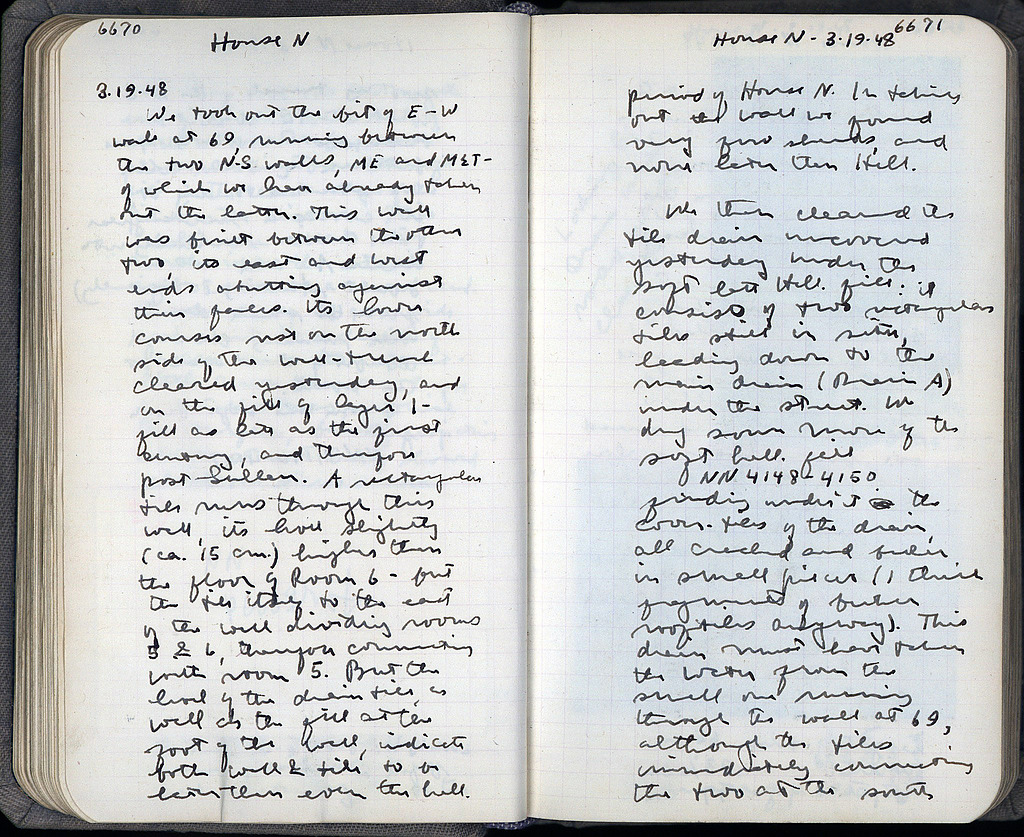 6670
House N
3.19.48
We took out the bit of E-W
wall at 69, running between
the two N-S walls, ME and MET-
of which we have already taken
out the latter. This wall
was built between the other
two, its east and west
ends abutting against
their faces. Its lower
courses rest on the north
side of the well-trench
cleared yesterday, and
on the fill of layer 1-
fill as late as the first
century, and therefore
post-Sullan. A rectangular
tile runs through this
wall, its level slightly
(ca. 15 cm.) higher than
the floor of Room 6 - but
the tile itself to the east
of the wall dividing rooms
5 & 6, therefore connecting
with room 5. But the
level of the drain tile, as
well as the fill at the
foot of the wall, indicate
both wall & tile to be
later than even the hell.
6671
House N - 3.19.48
period of House N. In taking
out the wall we found
very few sherds, and
none later than Hell.
We then cleaned the
tile drain uncovered
yesterday under the
soft late Hell. fill: it
consists of two rectangular
tiles still in situ,
leading down to the
main drain (Drain A)
under the street. We
dug some more of the
soft hell. fill
NN 4148-4150
finding under it the
cover-tiles of the drain,
all cracked and broken
in small pieces (I think
fragments of broken
rooftiles anyway). This
drain must have taken
the water from the
small one running
through the wall at 69,
although the tiles
immediately connecting
the two at the south